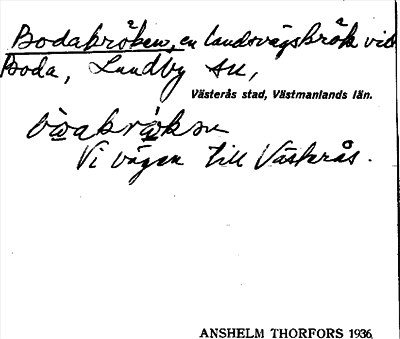 Bodakråken, en landsvägskråk vid
Boda, Lundby sn,
Västerås stad, Västmanlands län.
Vi vägen till Västerås.
ANSHELM THORFORS 1936.